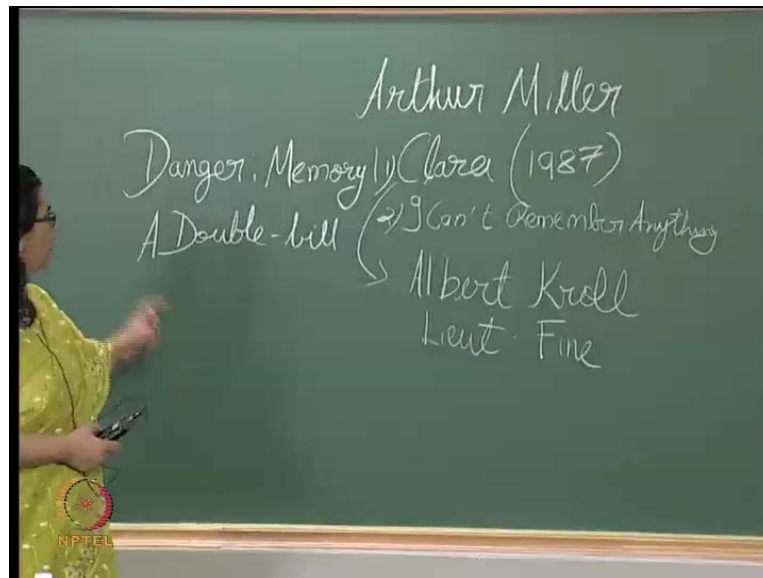 Arthur Miller
Danger: Memory 1) Clara (1987)
A Double-bill 2) I Can't Remember Anything
Albert Kroll
Lieut. Fine
NPTEL